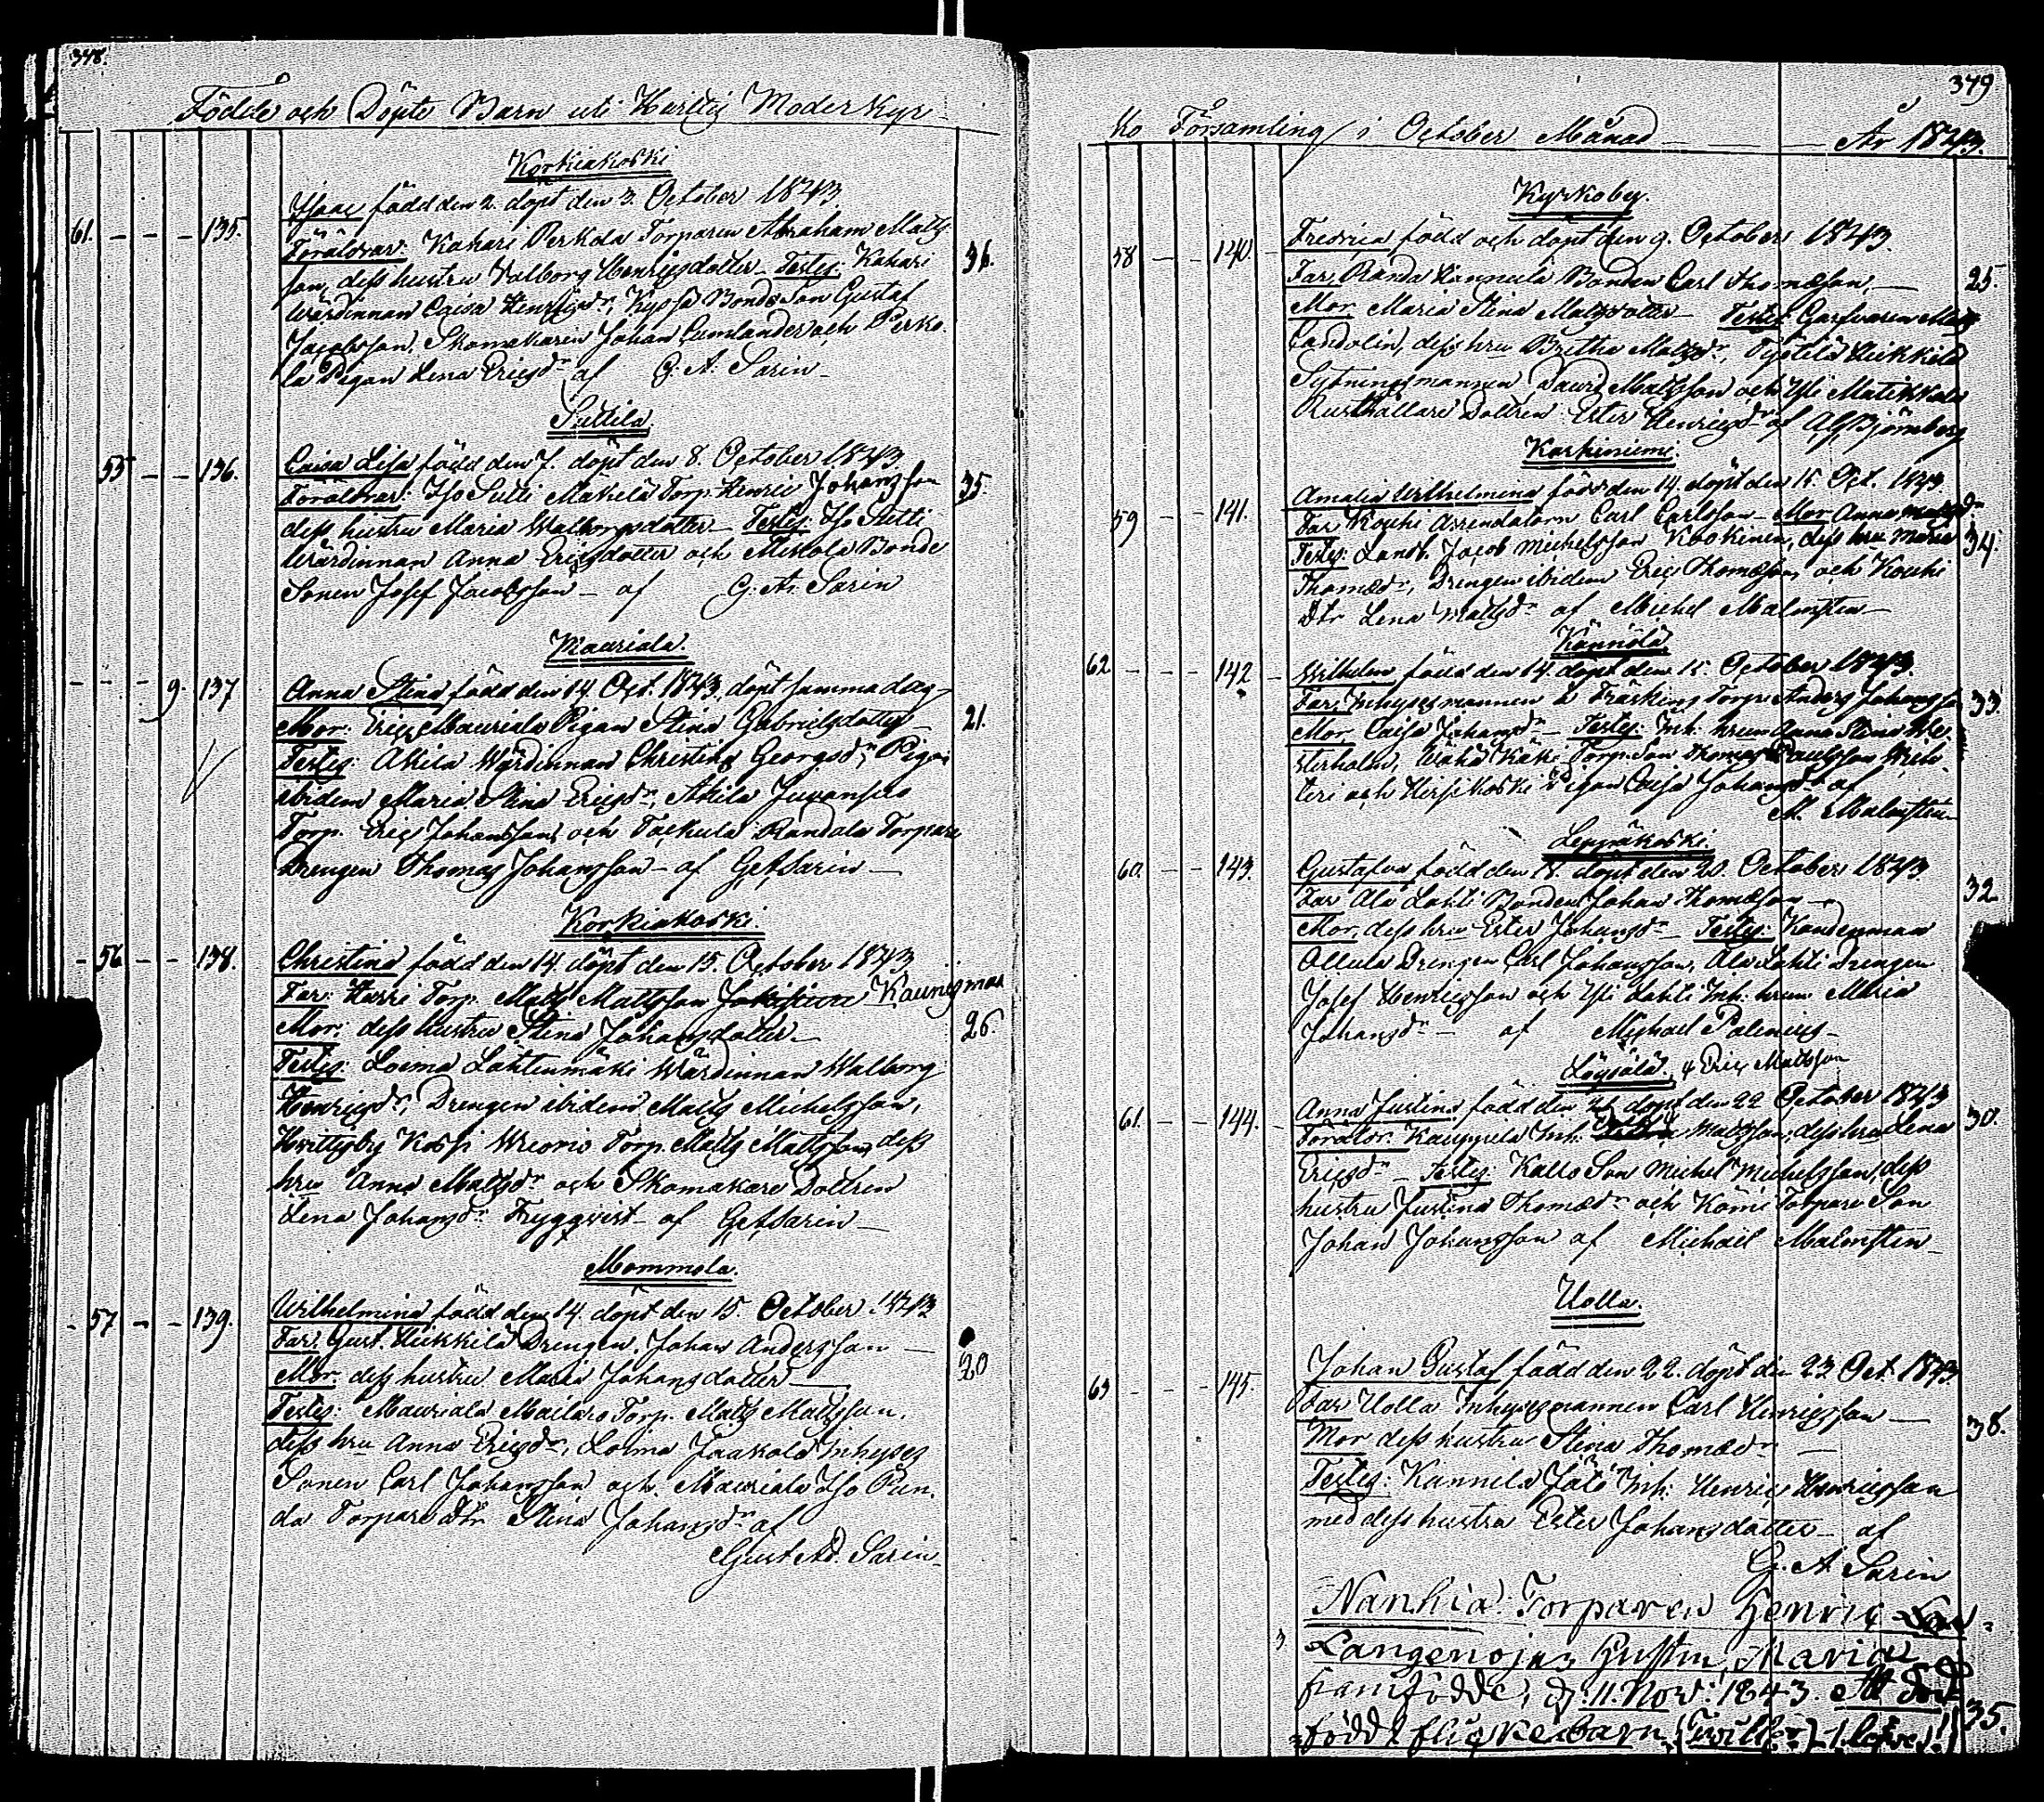 348.
Födde och Döpte Barn uti Moder Kyr-
Korkiakoski
61. - - - 135. Isaac född den 2. döpt den 3. October 1843.
Föräldrar: Kahari Perkola Torparen Abraham Matts
son, dess hustru Valborg Henricsdotter - Testes: Kahari 36.
Wärdinnan Caisa Henricsdr, Bonde Son Gustaf
Jacobsson, Skomakaren Johan och Perko
la Pigan Lena Ericsdr af G. A. Sarin -
Suttila
55 - - 136. Caisa Lisa född den 7. döpt den 8. October 1843
Föräldrar: Iso Sutti Mäkelä Torp. Henric Johansson 35.
dess hustru Maria - Testes: Iso Sutti
Wärdinnan Anna Ericsdotter och Mikola Bonde
Sonen Josef Jacobsson - af G. A. Sarin
Mauriala.
- - - 9. 137 Anna Stina född den 14 Oct. 1843. döpt samma dag -
Mor: Eric Mauriala Pigan Stina Gabrielsdotter 21.
Testes: Akila Wärdinnan Christina Georgsdr, Pigan
ibidem Maria Stina Ericsdr, Akila
Torp. Eric Johansson och Randala Torpare
Drengen Thomas Johansson - af G A Sarin -
Korkiakoski.
- 56 - - 138. Christina född den 14. döpt den 15. October 1843
Far: Harri Torp. Matts Mattsson Kaunismaa
Mor: dess hustru Stina Johansdotter - 26.
Testes: Loima Lähtenmäki Wärdinnan Walborg
Henricsdr, Drengen ibidem Matts Michelsson,
Hvittisby Torp. Matts Mattsson, dess
hru Anna Mattsdr och Skomakare Dottren
Lena Johansdr Tryggvest - af G A Sarin -
Mommola.
- 57 - - 139. Wilhelmina född den 14. döpt den 15. October 1843
Far: Gust. Heikkilä Drengen Johan Andersson -
Mor: dess hustru Maria Johansdotter - 20
Testes: Mauriala Maila Torp. Matts Mattsson,
dess hru Anna Ericsdr, Loima Jaakola Inhyses
Sonen Carl Johansson och Mauriala Iso
da Torpare Dtr Stina Johansdr af
Gust Ad. Sarin -
379
ko Församling i October Månad - År 1843.
Kyrkoby.
58 - - 140. Fredrica född och döpt den 9. October 1843.
Far, Randa Hannula Bonden Carl Thomasson, - 25.
Mor, Maria Stina Mattsdotter - Testes Garfvaren Matts
Landolin, dess hru Britha Mattsdr, Heikkilä
Sytningsmannen David Mattsson och Yli
Rusthållare Dottren Ester Henricsdr af Björnberg
Karhiniemi.
59 - - 141. Amalia Wilhelmina född den 14. döpt den 15 Oct. 1843
Far Kouhi Arrendatorn Carl Carlsson - Mor Anna Mattsdr
Testes: Landb. Jacob Michelsson, dess hru Maria 34.
Thomædr, Drengen ibidem Eric Thomæson, och Kouhi
Dtr Lena Mattsdr af Michel Malmsten -
Kännölä
62 - - - 142 - Wilhelm född den 14. döpt den 15. October 1843.
Far, Inhysesmannen å Torp: Anders Johansson 33.
Mor, Caisa Johansdr - Testes: Inh. hrun Anna Stina We-
sterholm, Torp. Son Thomas Paulsson
och Hirsikoski Pigan Caisa Johansdr af
M. Malmsten -
Leppäkoski.
60. - - 143. Gustafva född den 18. döpt den 20. October 1843
Far Ala Lahti Bonden Johan Thomæson - 32
Mor, dess hru Ester Johansdr - Testes:
Ollula Drengen Carl Johansson, Ala Lahti Drengen
Josef Henricsson och Yli Lahti Inh. hrun Maria
Johansdr - af Michael Polenius -
Löysälä, & Eric Mattsson
61. - - 144. Anna Justina född den 21. döpt den 22 October 1843
Föräldr. Inh. Mattsson, dess hru Lena 30.
Ericsdr - Testes: Kallo Son Michel Michelsson, dess
hustru Justina Thomædr och Torpare Son
Johan Johansson af Michaël Malmsten -
Uolla.
63 - - - 145. Johan Gustaf född den 22. döpt den 23 Oct. 1843.
Far Uolla Inhysesmannen Carl Henricsson -
Mor dess hustru Stina Thomædr - 38.
Testes: Kannila Inh. Henric Henricsson
med dess hustru Ester Johansdotter - af
G. A Sarin
Nanhia Torparen Henric
Langenojas Hustru, Maria
framfödde, d. 11. Nov: 1843. Ett död-
född flickebarn 35.